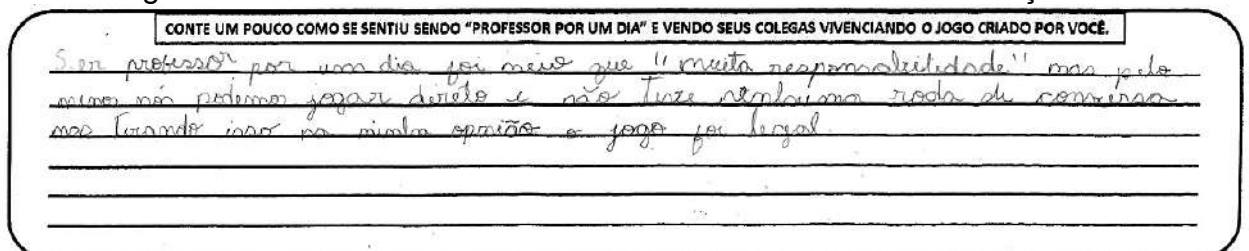 CONTE UM POUCO COMO SE SENTIU SENDO "PROFESSOR POR UM DIA" E VENDO SEUS COLEGAS VIVENCIANDO O JOGO CRIADO POR VOCÊ.
Ser professor por um dia foi meio que "muita responsabilidade" mas pelo
menos nós podemos jogar direto e não teve nenhuma roda de conversa
mas tirando isso na minha opnião o jogo foi legal.